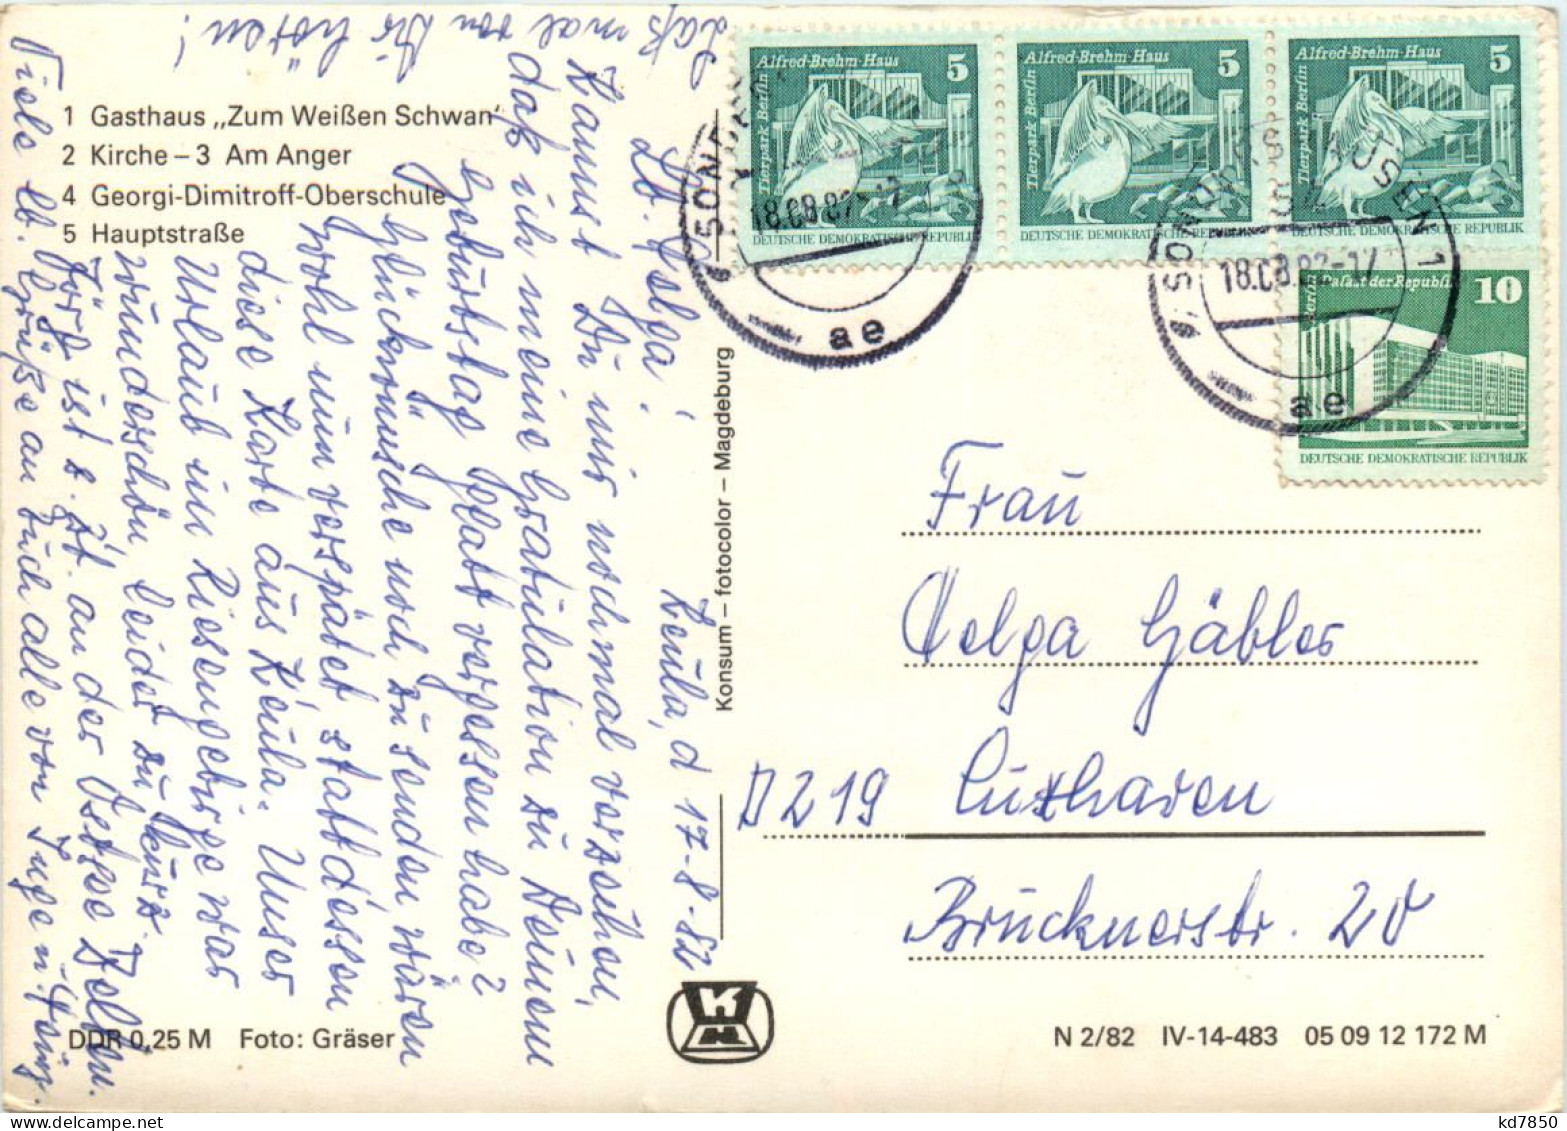 1 Gasthaus „Zum Weißen Schwan“
2 Kirche – 3 Am Anger
4 Georgi-Dimitroff-Oberschule
5 Hauptstraße
Keula, d 17.8.82
Lb. Helga!
Kannst Du mir nochmal verzeihen,
daß ich meine Gratulation zu Deinem
Geburtstag glatt vergessen habe?
Glückwünsche noch zu senden wären
wohl nun verspätet stattdessen
diese Karte aus Keula. Unser
Urlaub im Riesengebirge war
wunderschön, leider zu kurz.
Jörg ist z. Zt. an der Ostsee
Viele lb. Grüße an Euch alle von Inge u.
Laß mal von Dir hören!
Konsum – fotocolor – Magdeburg
Tierpark Berlin
Alfred-Brehm-Haus
5
DEUTSCHE DEMOKRATISCHE REPUBLIK
Tierpark Berlin
Alfred-Brehm-Haus
5
DEUTSCHE DEMOKRATISCHE REPUBLIK
Tierpark Berlin
Alfred-Brehm-Haus
5
DEUTSCHE DEMOKRATISCHE REPUBLIK
Berlin
Palast der Republik
10
DEUTSCHE DEMOKRATISCHE REPUBLIK
18.08.82
ae
SONDERSHAUSEN 1
18.08.82-17
ae
Frau
Helga Gäbler
D 219 Cuxhaven
Brucknerstr. 20
DDR 0,25 M Foto: Gräser
K
N 2/82 IV-14-483 05 09 12 172 M
kd7850